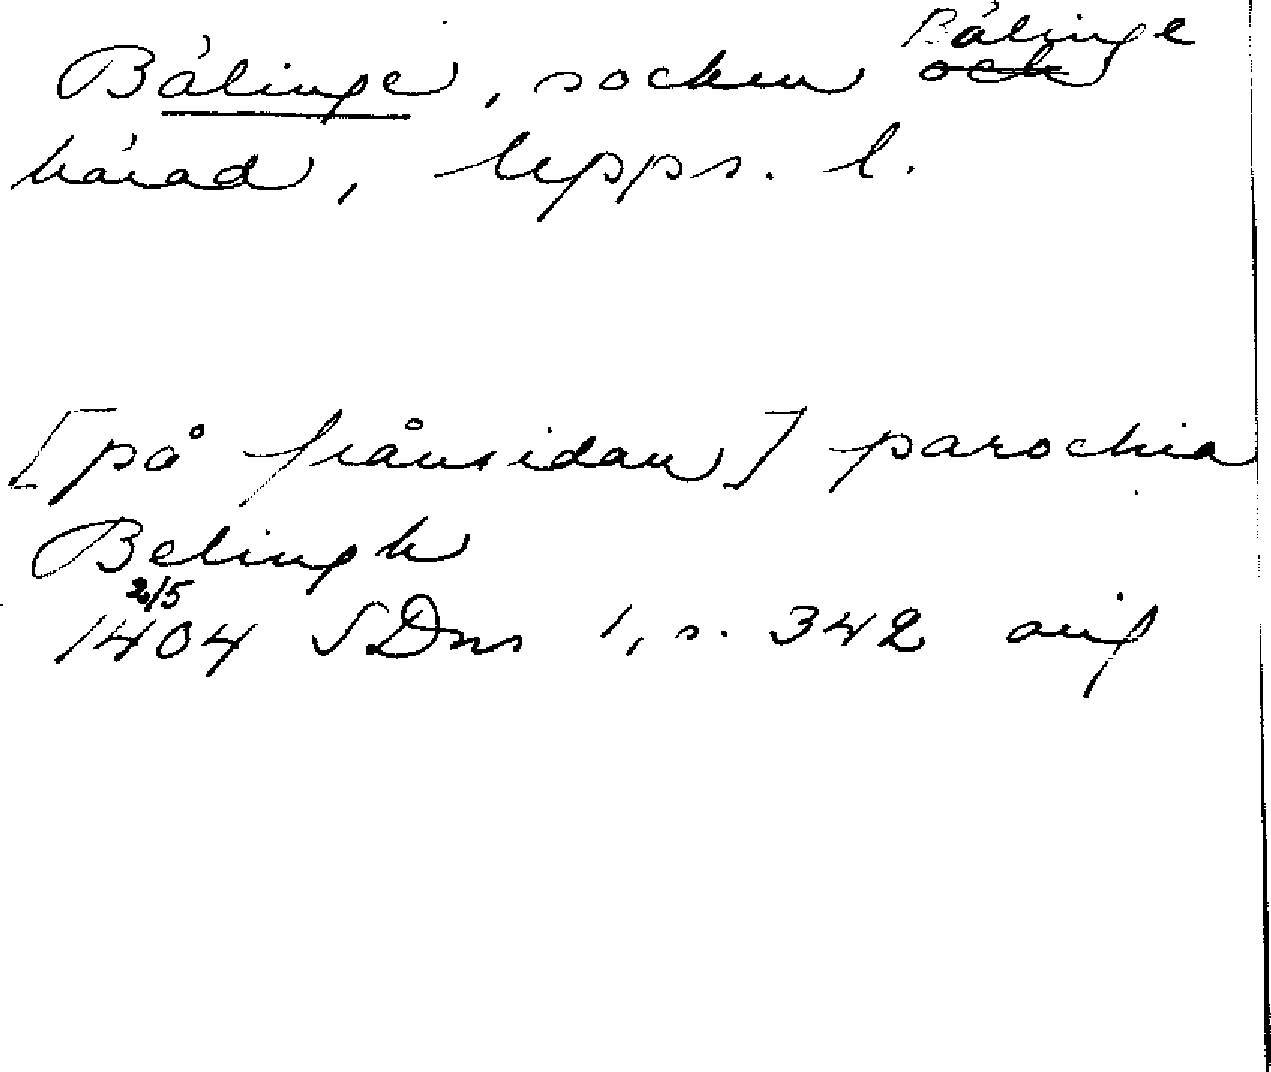 Bälinge, socken Bälinge och
härad, Upps. l.
[på frånsidan] parochia
Belingh
2/5
1404 SDns 1, s. 342 avs